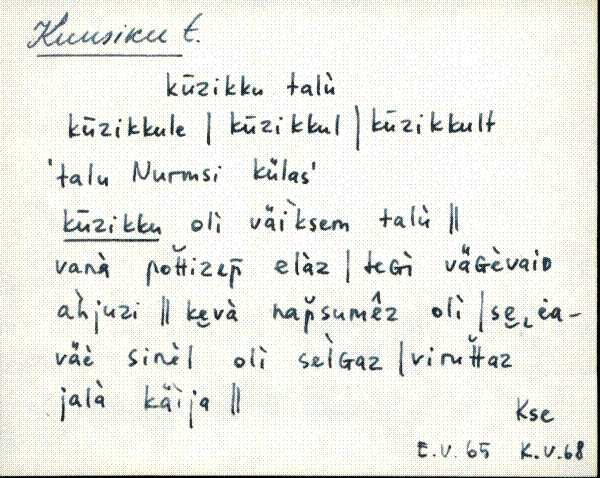 Kuusiku t.
kūzikku talù
kūzikkule | kūzikkul | kūzikkult
'talu Nurmsi külas'
kūzikku olì väìksem talù ||
vanà elàz | tegì vägèvaid
ahjuzi || kevà olì |
väè sinèl olì selgaz |
jalà käìja ||
Kse
E.V. 65 K.V. 68